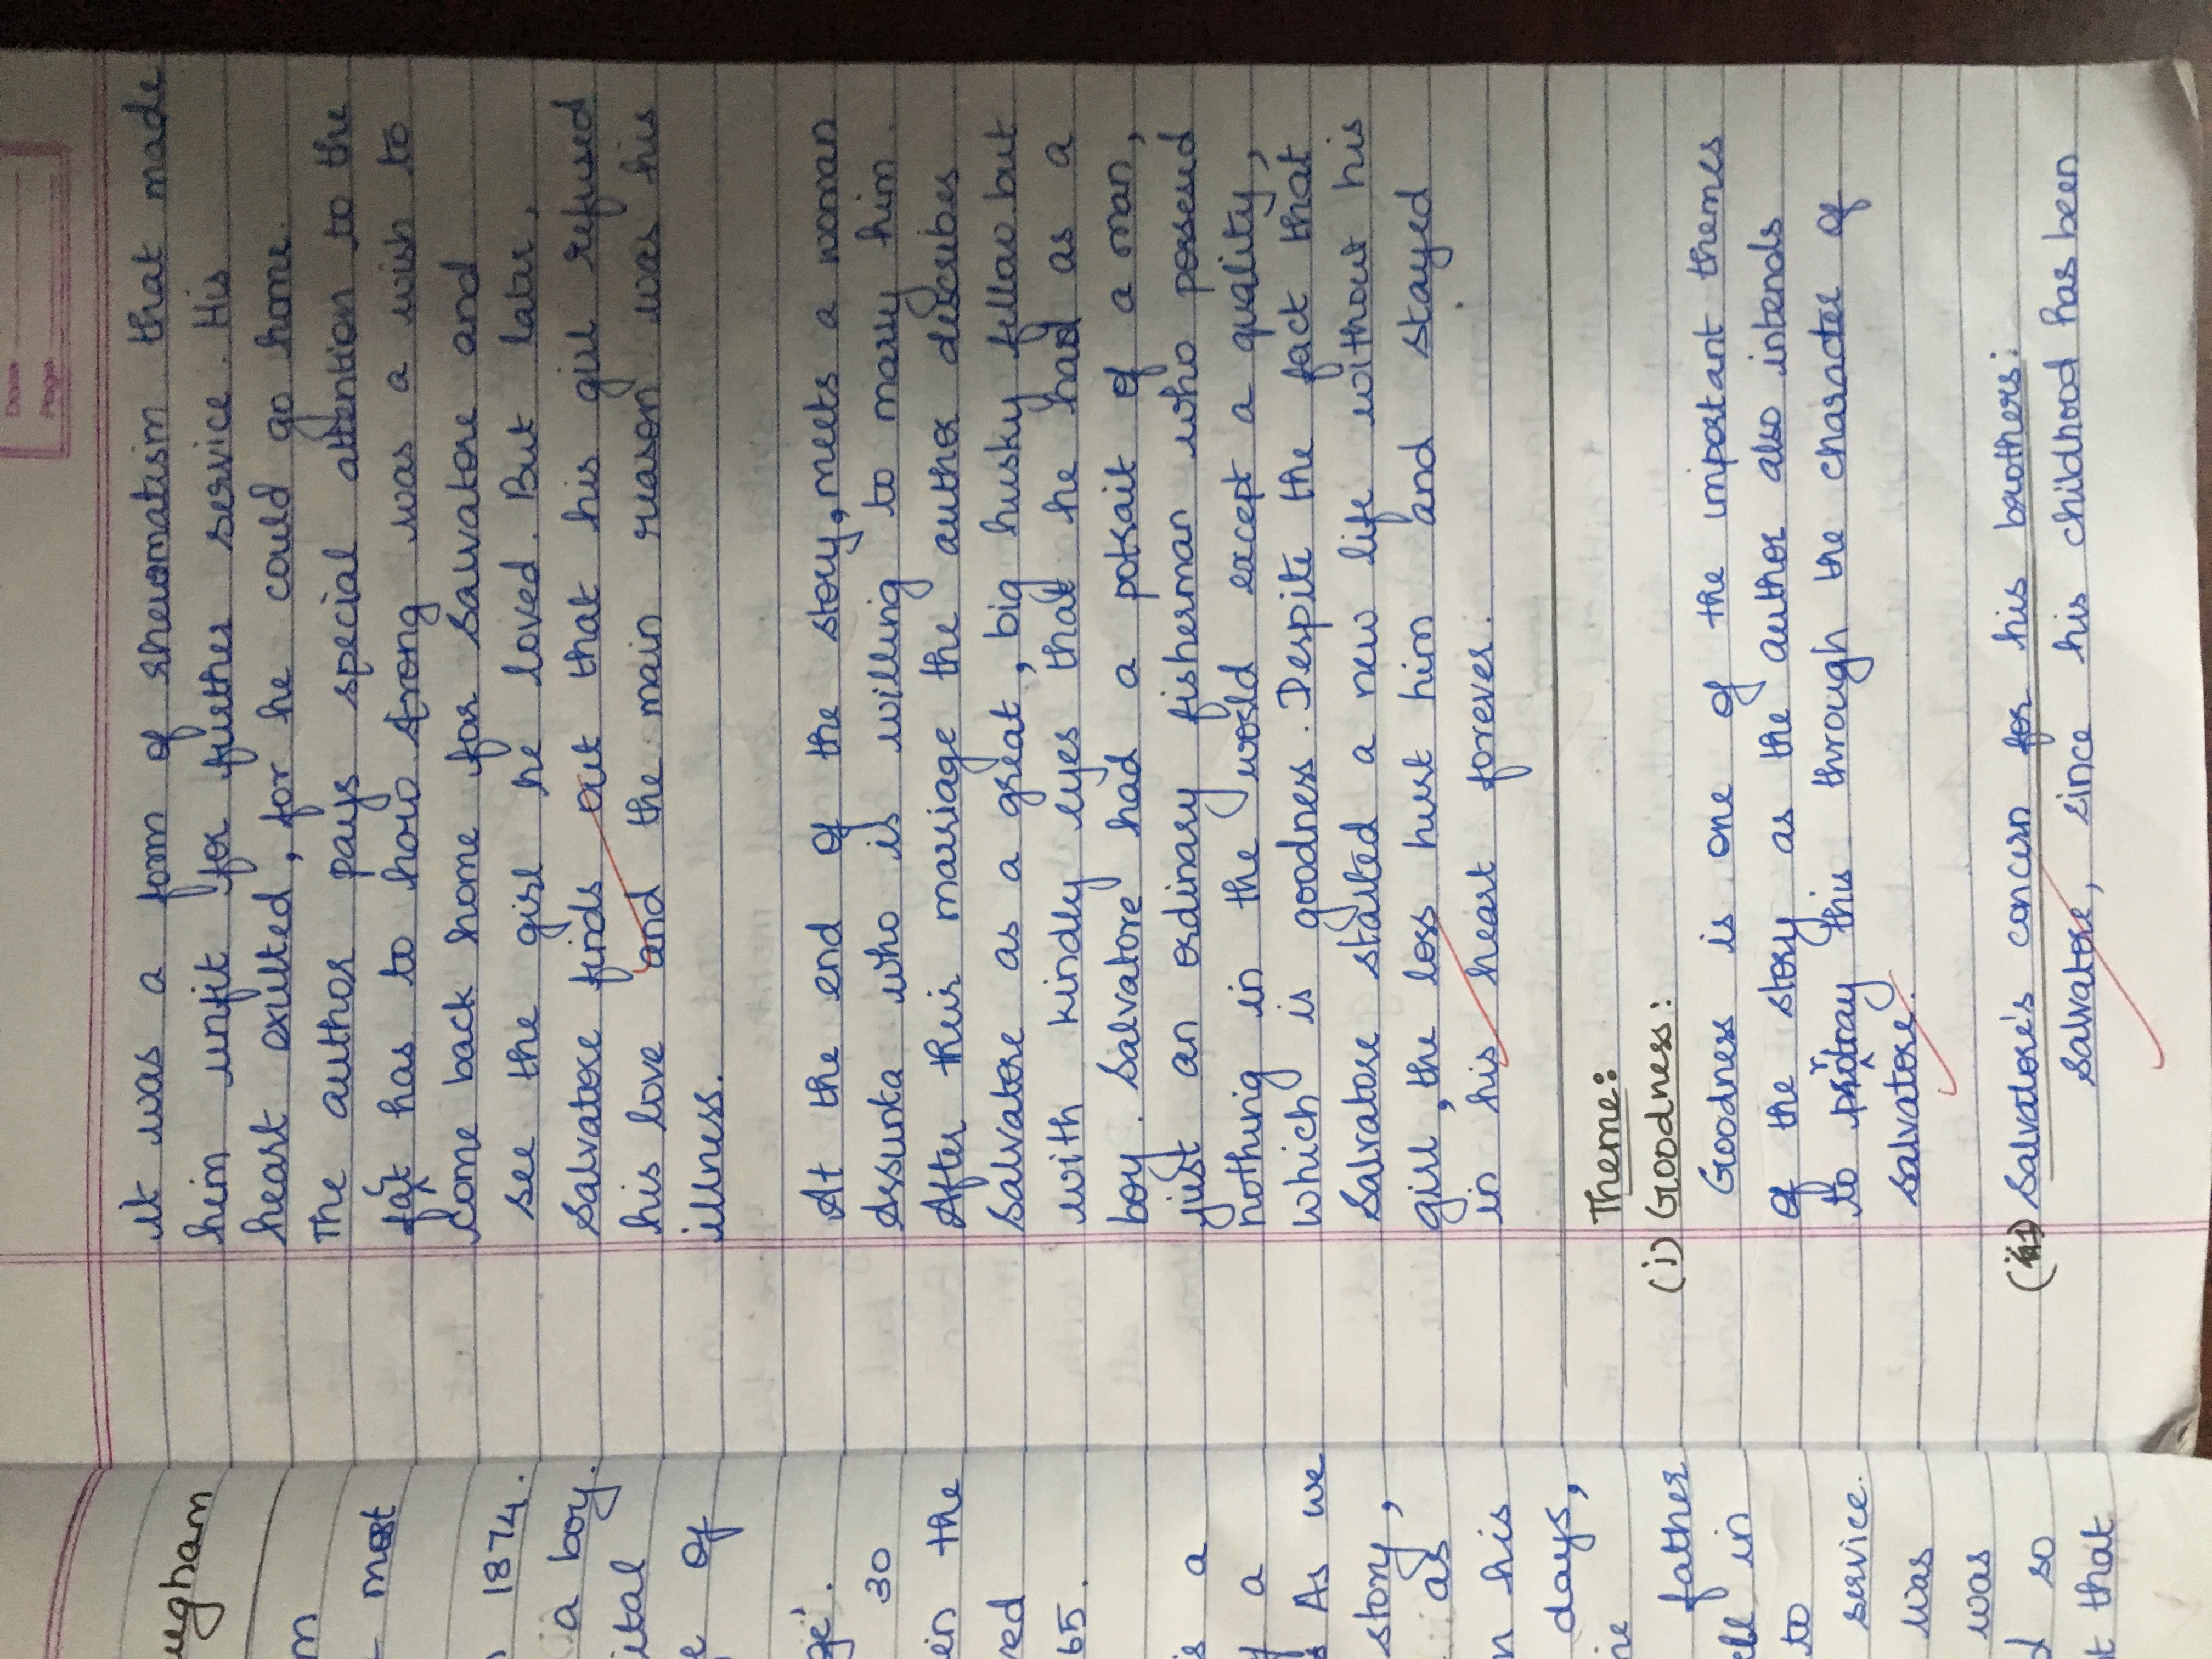 Date
Page
ugham
m
most
1874.
a boy.
ital
e of
ge'.
30
in the
ved
65.
s a
y a
As we
story,
as
n his
days,
ne
father
in
to
service.
was
was
d so
t that
it was a form of rheuomatism that made
him unfit for further service. His
heart exulted, for he could go home.
The author pays special attention to the
fact has to how strong was a wish to
come back home for Salvatore and
see the girl he loved. But later,
Salvatore finds out that his girl refused
his love and the main reason was his
illness.
At the end of the story, meets a woman
Assunta who is willing to marry him.
After their marriage the author describes
Salvatore as a great, big husky fellow but
with kindly eyes that he had as a
boy. Salvatore had a potrait of a man,
just an ordinary fisherman who possesed
nothing in the world except a quality,
which is goodness. Despite the fact that
Salvatore started a new life without his
girl, the loss hurt him and stayed
in his heart forever.
Theme:
(i) Goodness:
Goodness is one of the important themes
of the story as the author also intends
to protray this through the character of
Salvatore.
(ii) Salvatore's concern for his brothers:
Salvatore, since his childhood has been